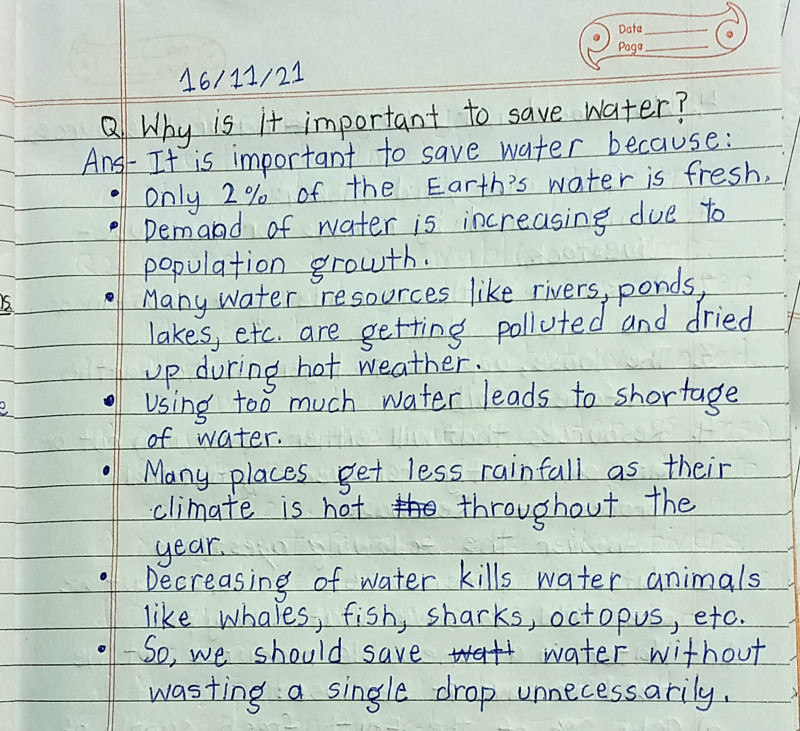 Date
Page
16/11/21
Q. Why is it important to save water?
Ans- It is important to save water because:
• Only 2% of the Earth's water is fresh.
• Demand of water is increasing due to
population growth.
• Many water resources like rivers, ponds,
lakes, etc. are getting polluted and dried
up during hot weather.
• Using too much water leads to shortage
of water.
• Many places get less rainfall as their
climate is hot the throughout the
year.
• Decreasing of water kills water animals
like whales, fish, sharks, octopus, etc.
• So, we should save watt water without
wasting a single drop unnecessarily.